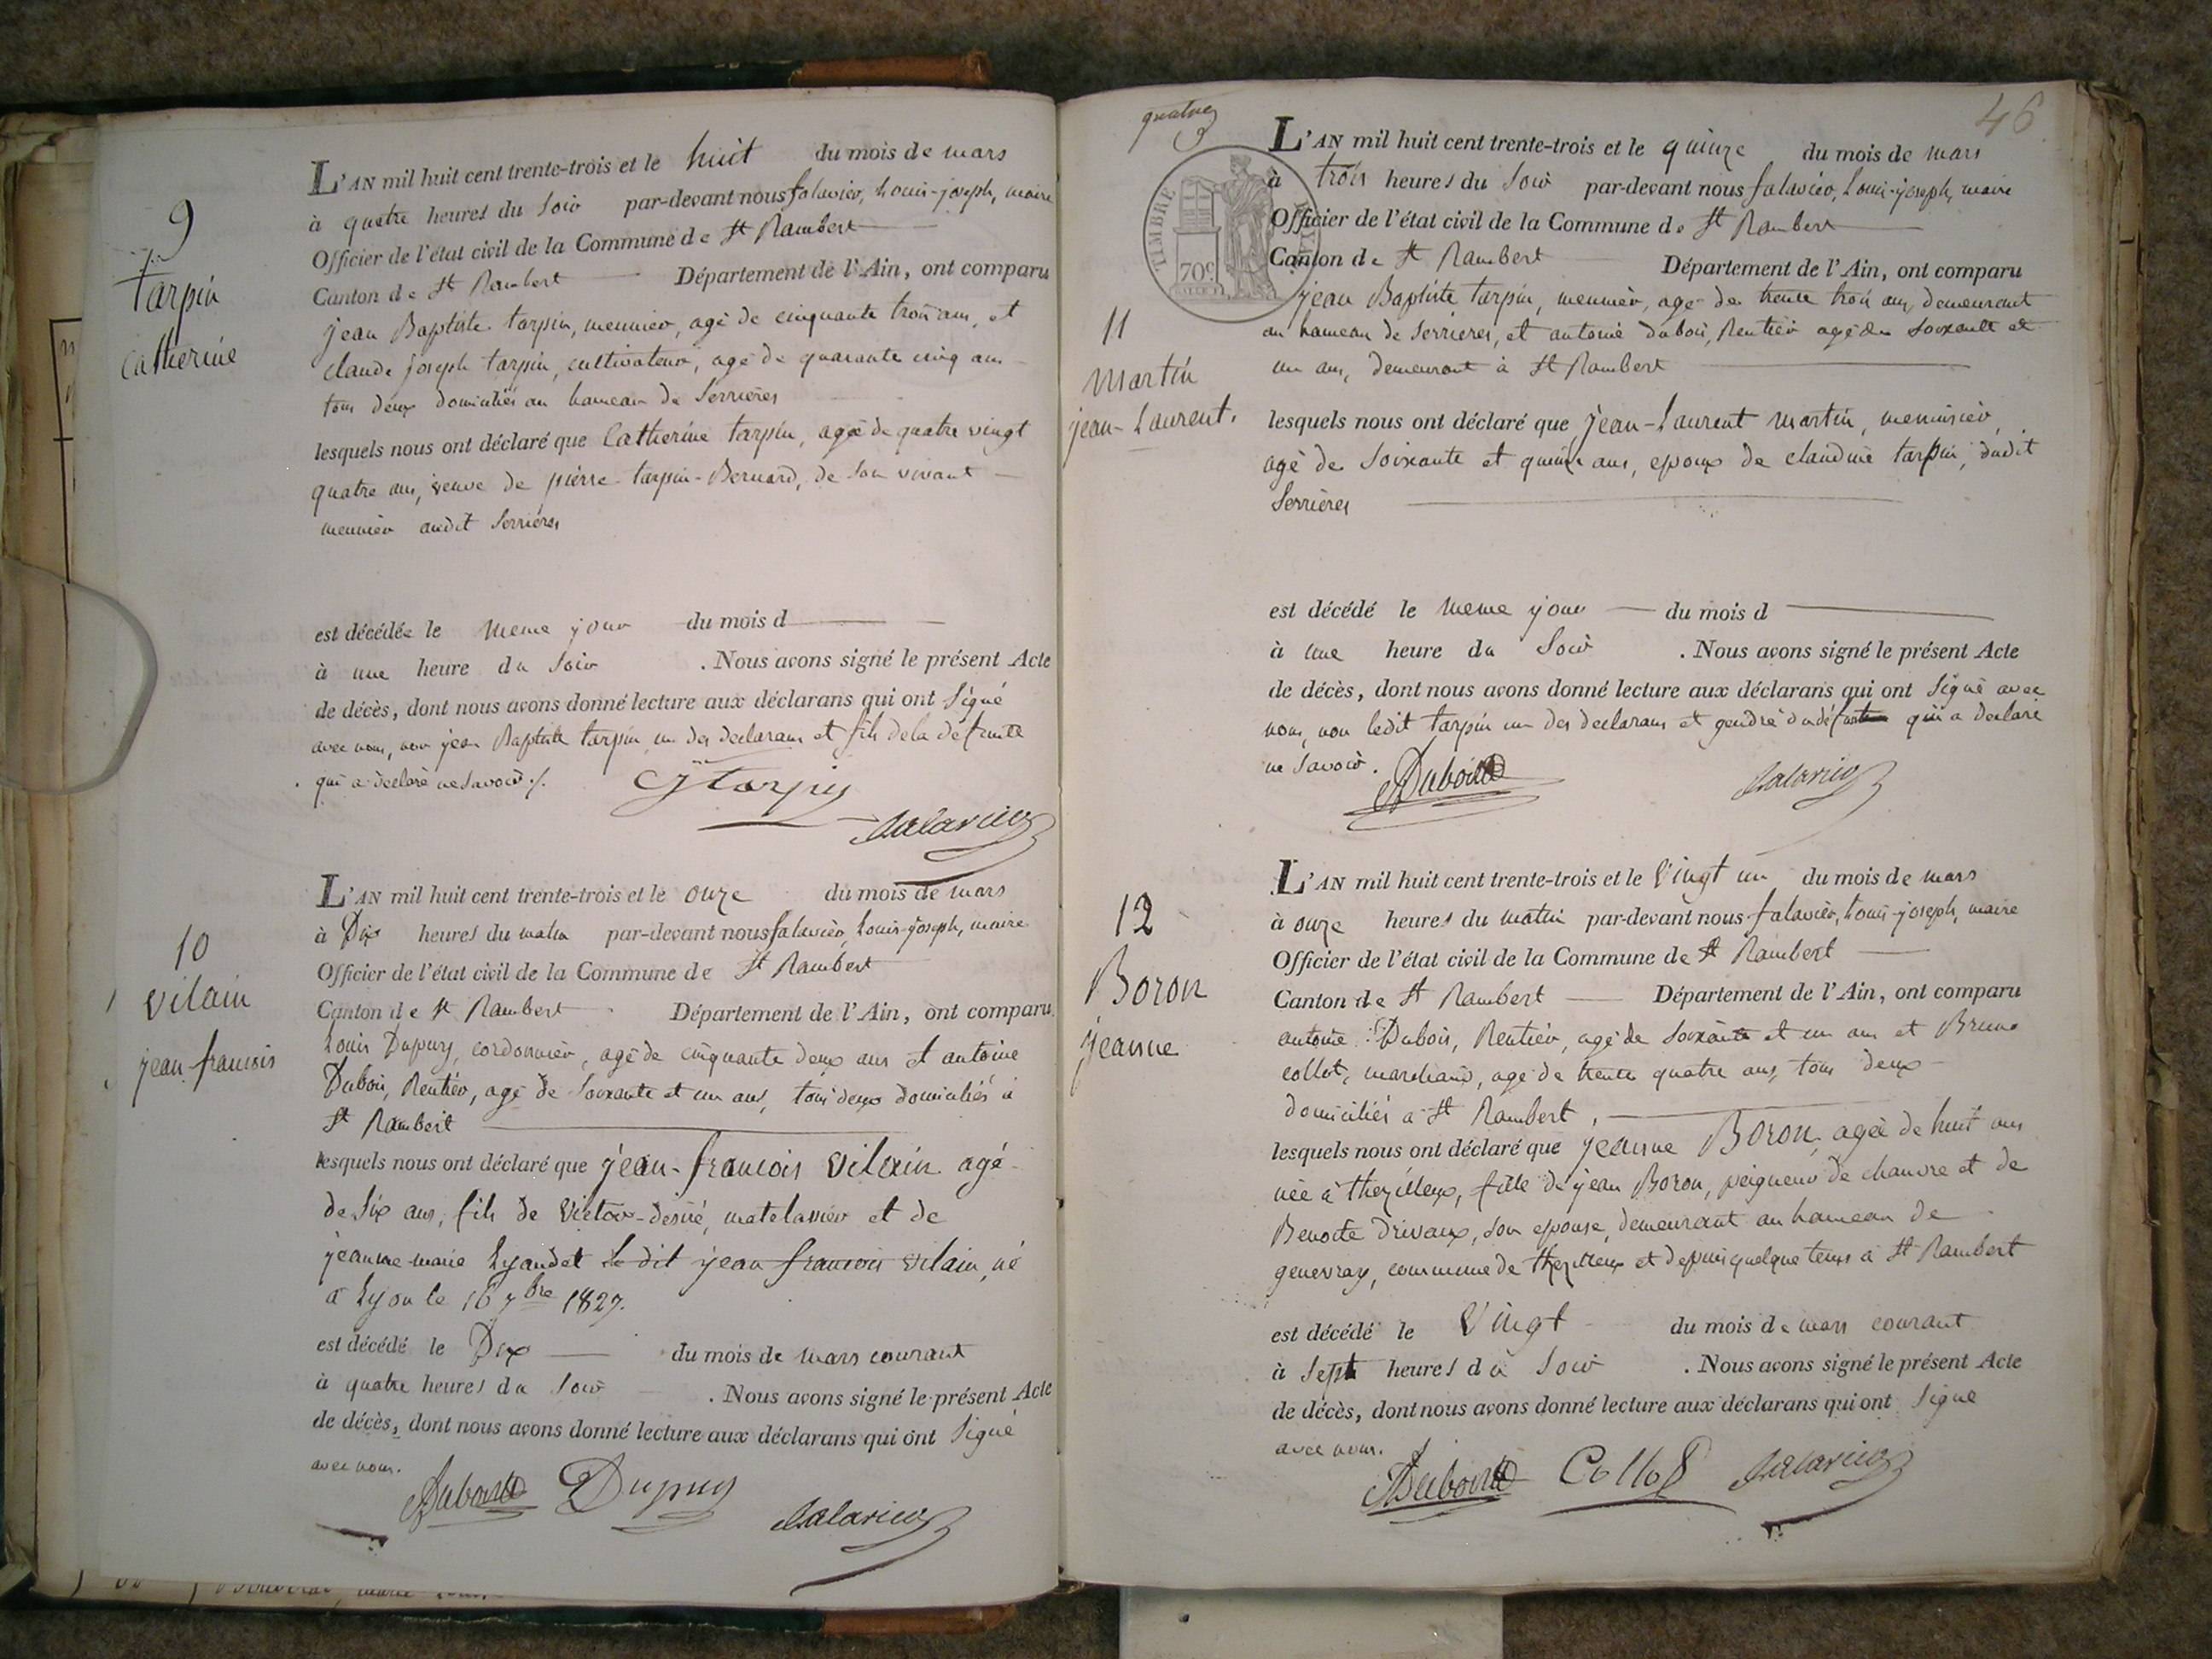 9
tarpin
catherine
L'AN mil huit cent trente-trois et le huit du mois de mars
à quatre heures du soir par-devant nous falavier, Louis-joseph, maire
Officier de l'état civil de la Commune de St Rambert
Canton de St Rambert Département de l'Ain, ont comparu
jean Baptiste tarpin, meunier, agé de cinquante trois ans, et
claude joseph tarpin, cultivateur, agé de quarante cinq ans
tous deux domiciliés au hameau de Serrières
lesquels nous ont déclaré que Catherine tarpin, agée de quatre vingt
quatre ans, veuve de pierre tarpin-Bernard, de son vivant
meunier audit Serrières
est décédée le meme jour du mois d
à une heure du soir . Nous avons signé le présent Acte
de décès, dont nous avons donné lecture aux déclarans qui ont signé
avec nous, non jean Baptiste tarpin un des declarans et fils de la defunte
qui a déclaré ne savoir ./.
CJ tarpin
falavier
10
vilain
jean francois
L'AN mil huit cent trente-trois et le onze du mois de mars
à Dix heures du matin par-devant nous falavier, Louis-joseph, maire
Officier de l'état civil de la Commune de St Rambert
Canton de St Rambert Département de l'Ain, ont comparu
Louis Dupuy, cordonnier, agé de cinquante deux ans et antoine
Dubois, Rentier, agé de soixante et un ans, tous deux domiciliés à
St Rambert
lesquels nous ont déclaré que jean-francois vilain agé
de six ans, fils de Victor-desiré, matelassier et de
jeanne-marie Lyandet le dit jean francois vilain, né
à Lyon le 16 7bre 1827.
est décédé le Dix du mois de mars courant
à quatre heures du soir . Nous avons signé le présent Acte
de décès, dont nous avons donné lecture aux déclarans qui ont signé
avec nous.
Dubois Dupuy falavier
46
quatre
TIMBRE ROYAL
70c
11
martin
jean-Laurent.
L'AN mil huit cent trente-trois et le quinze du mois de mars
à trois heures du soir par-devant nous falavier, Louis-joseph, maire
Officier de l'état civil de la Commune de St Rambert
Canton de St Rambert Département de l'Ain, ont comparu
jean Baptiste tarpin, meunier, agé de trente trois ans, demeurant
au hameau de Serrieres, et antoine dubois, Rentier agé de soixante et
un ans, demeurant à St Rambert
lesquels nous ont déclaré que jean-Laurent martin, menuisier,
agé de soixante et quinze ans, epoux de claudine tarpin, dudit
Serrières
est décédé le meme jour du mois d
à une heure du soir . Nous avons signé le présent Acte
de décès, dont nous avons donné lecture aux déclarans qui ont signé avec
nous, non ledit tarpin un des declarans et gendre du défunt qui a declaré
ne savoir.
Dubois falavier
12
Boron
jeanne
L'AN mil huit cent trente-trois et le vingt un du mois de mars
à onze heures du matin par-devant nous falavier, Louis-joseph, maire
Officier de l'état civil de la Commune de St Rambert
Canton de St Rambert Département de l'Ain, ont comparu
antoine Dubois, Rentier, agé de soixante et un ans et Bruno
collot, marchand, agé de trente quatre ans, tous deux
domiciliés à St Rambert,
lesquels nous ont déclaré que jeanne Boron, agée de huit ans
née à thezilleux, fille de jean Boron, peigneur de chanvre et de
Benoite Drivaux, son epouse, demeurant au hameau de
genevray, commune de thezilleux et depuis quelque tems à St Rambert
est décédé le Vingt du mois de mars courant
à sept heures du soir . Nous avons signé le présent Acte
de décès, dont nous avons donné lecture aux déclarans qui ont signé
avec nous.
Dubois Collot falavier